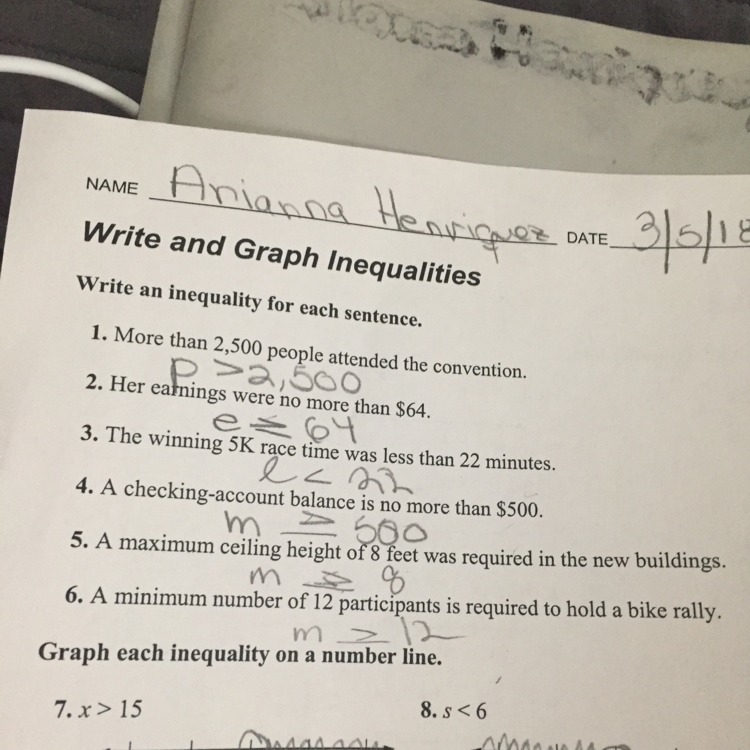 Henriquez
NAME Arianna Henriquez DATE 3/5/18
Write and Graph Inequalities
Write an inequality for each sentence.
1. More than 2,500 people attended the convention.
p > 2,500
2. Her earnings were no more than $64.
e ≤ 64
3. The winning 5K race time was less than 22 minutes.
l < 22
4. A checking-account balance is no more than $500.
m ≥ 500
5. A maximum ceiling height of 8 feet was required in the new buildings.
m 8
6. A minimum number of 12 participants is required to hold a bike rally.
m ≥ 12
Graph each inequality on a number line.
7. x > 15 8. s < 6